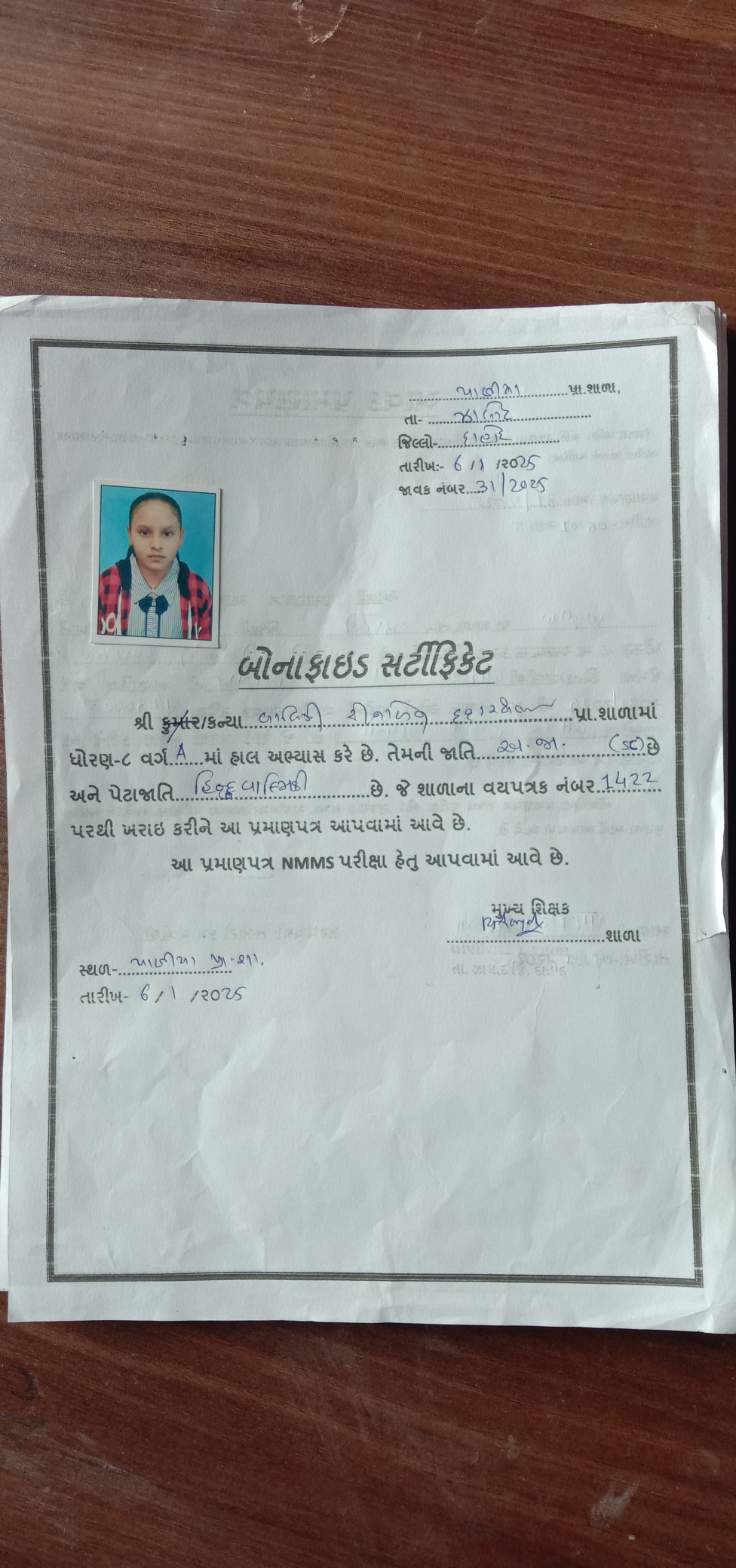 પ્રા.શાળા,
તા-
જિલ્લો- દાહોદ
તારીખ:- 6/1/2025
જાવક નંબર...31/2025
બોનાફાઇડ સર્ટીફિકેટ
શ્રી કુમાર/કન્યા પ્રા.શાળામાં
ધોરણ-૮ વર્ગ.A...માં હાલ અભ્યાસ કરે છે. તેમની જાતિ અ.જા. (SC) છે
અને પેટાજાતિ હિન્દુ વાલ્મિકી છે. જે શાળાના વયપત્રક નંબર 1422
પરથી ખરાઇ કરીને આ પ્રમાણપત્ર આપવામાં આવે છે.
આ પ્રમાણપત્ર NMMS પરીક્ષા હેતુ આપવામાં આવે છે.
મુખ્ય શિક્ષક
શાળા
સ્થળ- પ્રા.શા.
તારીખ- 6/1/2025